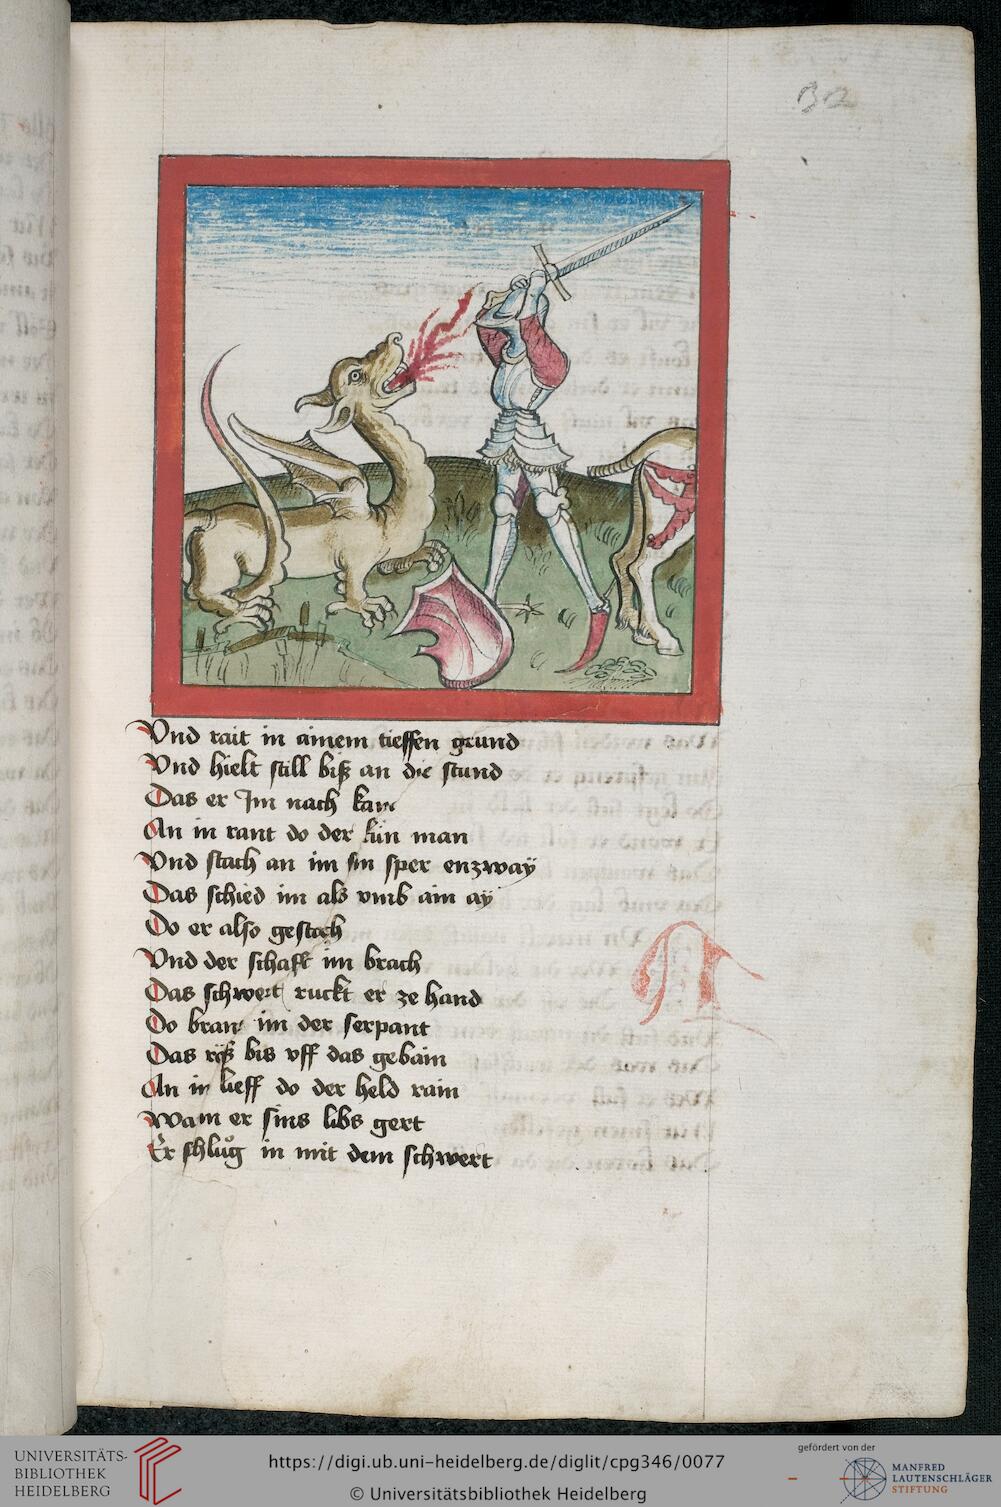 32
Vnd rait in ainem tieffen grund
Vnd hielt still biß an die stund
Das er Im nach kam
An in rant do der kün man
Vnd stach an im sin sper enzway
Das schied im als vmb ain ay
Do er also gestoch
Vnd der schafft im brach
Das schwert ruckt er ze hand
Do bran im der serpant
Das röß bis vff das gebain
An in lieff do der held rain
Wann er sins libs gert
Er schlůg in mit dem schwert
UNIVERSITÄTS-
BIBLIOTHEK
HEIDELBERG
https://digi.ub.uni-heidelberg.de/diglit/cpg346/0077
© Universitätsbibliothek Heidelberg
gefördert von der
MANFRED
LAUTENSCHLÄGER
STIFTUNG